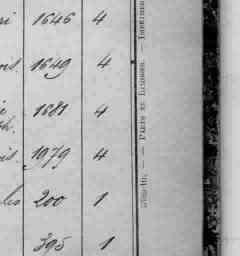 ri 1646 4
is. 1649 4
1681 4
ch.
is. 1979 4
lis 200 1
395 1
PARIS ET LIMOGES. — IMPRIMER